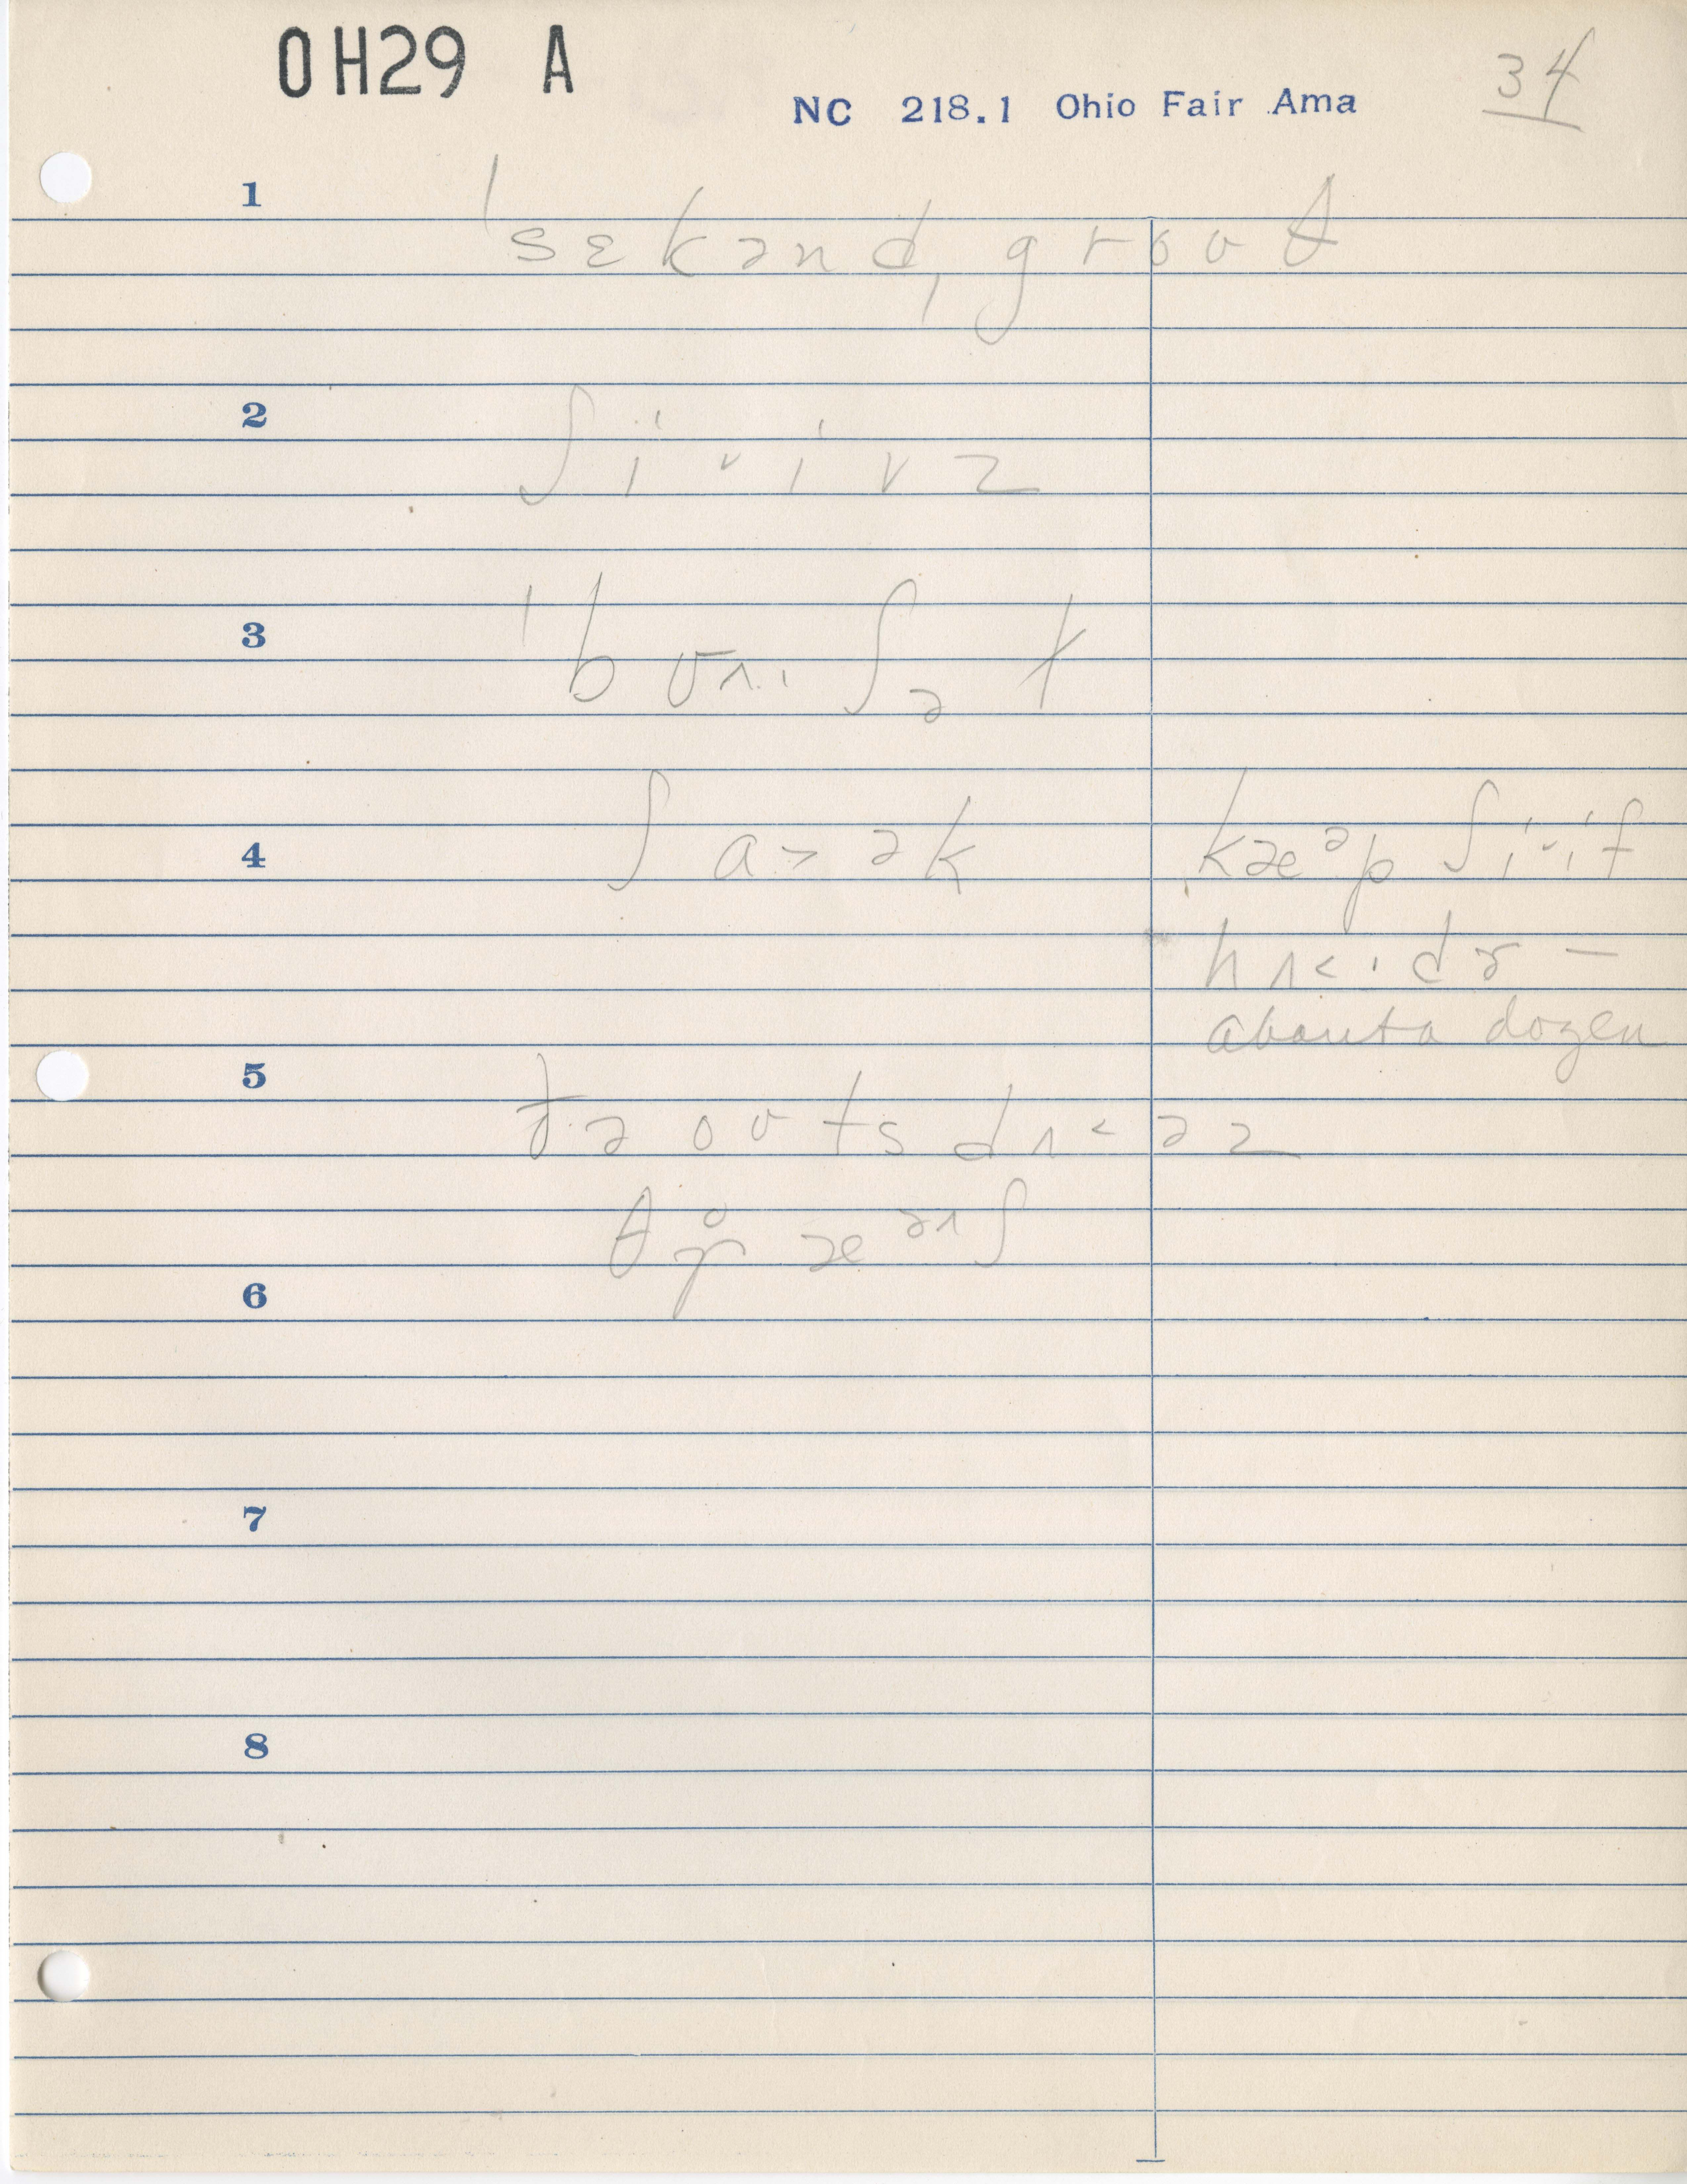 OH29 A
NC 218.1 Ohio Fair Ama
34
1
ˈsɛkənd ˌgroʊθ
2
ʃivz
3
ˈbʊʃət
4
ʃɑ˃ək
kæᵊp ʃif
hʌ˂·dɚ —
about a dozen
5
ðə oʊts dʌ˂əz
θr̥æᵊnʃ
6
7
8